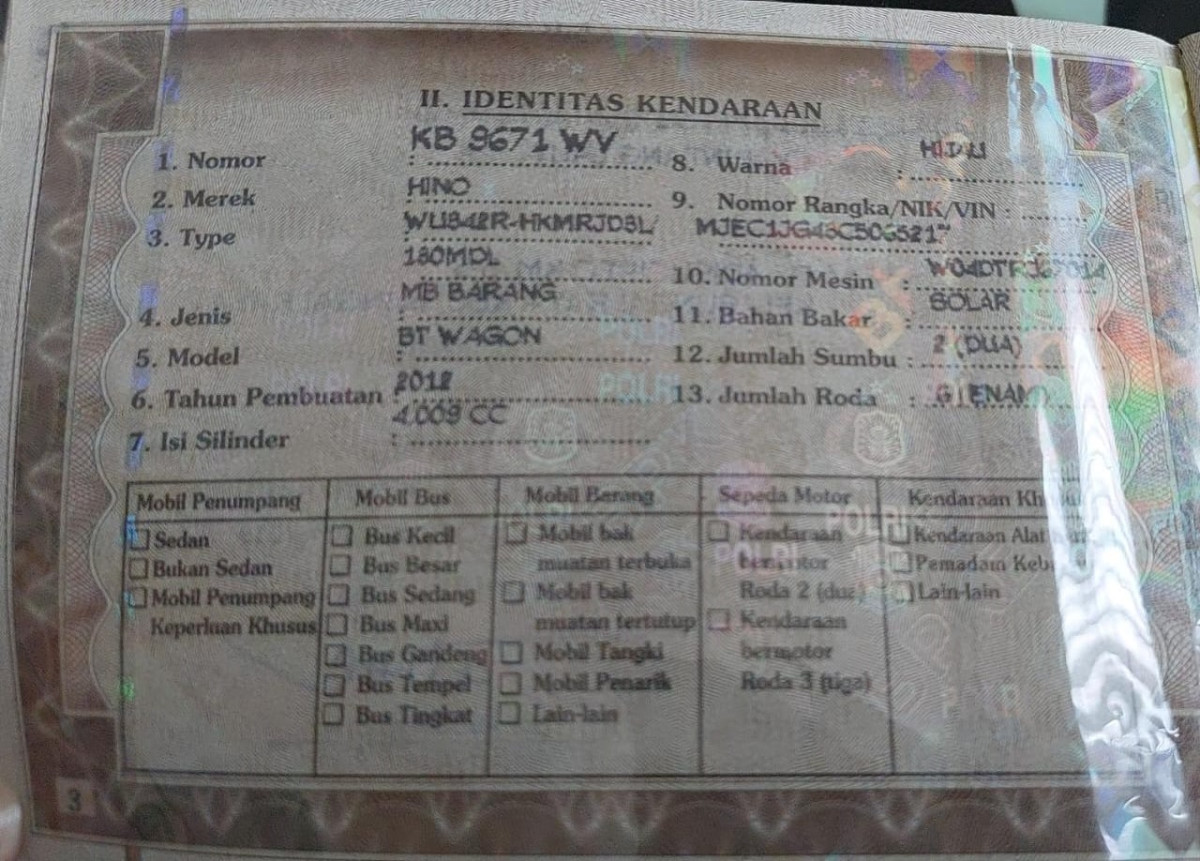 II. IDENTITAS KENDARAAN
1. Nomor : KB 9671 WV
2. Merek : HINO
3. Type : WU342R-HKMRJD3L/
130MDL
4. Jenis : MB BARANG
5. Model : BT WAGON
6. Tahun Pembuatan : 2012
7. Isi Silinder : 4.009 CC
8. Warna : HIJAU
9. Nomor Rangka/NIK/VIN :
10. Nomor Mesin :
11. Bahan Bakar : SOLAR
12. Jumlah Sumbu : 2 (DUA)
13. Jumlah Roda :
Mobil Penumpang
Sedan
Bukan Sedan
Mobil Penumpang
Keperluan Khusus
Mobil Bus
Bus Kecil
Bus Besar
Bus Sedang
Bus Maxi
Bus Gandeng
Bus Tempel
Bus Tingkat
Mobil Barang
Mobil bak
muatan terbuka
Mobil bak
muatan tertutup
Mobil Tangki
Mobil Penarik
Lain-lain
Sepeda Motor
Kendaraan
bermotor
Roda 2 (dua)
Kendaraan
bermotor
Roda 3 (tiga)
Kendaraan
Kendaraan Alat
Pemadam
Lain-lain
POLRI
POLRI
POLRI
3